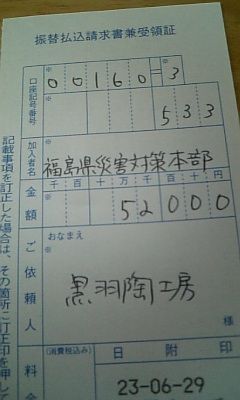 振替払込請求書兼受領証
口座記号番号
※
00160-3
※
533
加入者名
※
福島県災害対策本部
金額
千百十万千百十円
※
52000
ご依頼人
おなまえ
※
黒羽陶工房
料金
(消費税込み)
※
日附印
23-06-29
記載事項を訂正した場合は、その箇所に訂正印を押して